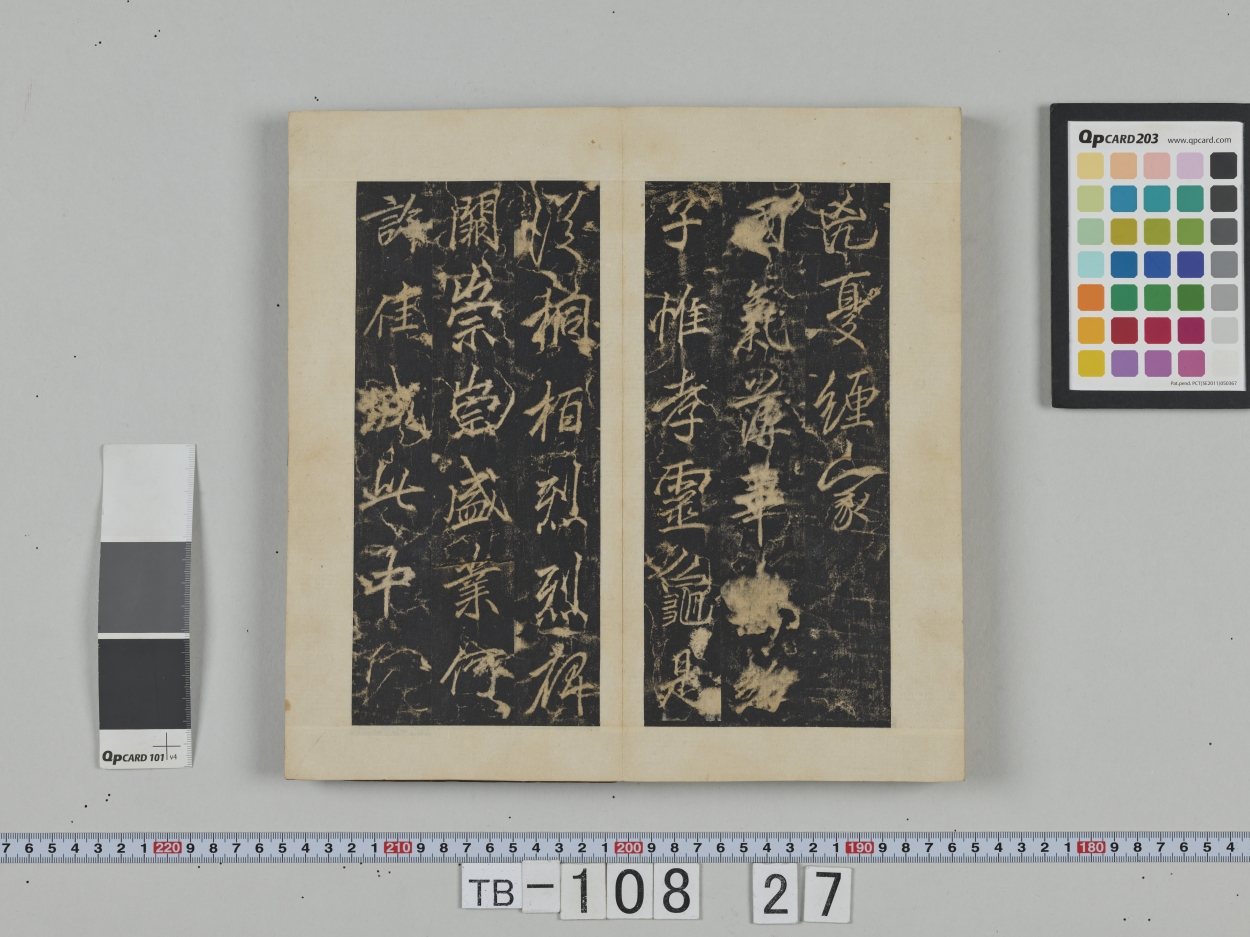 兇憂纏家
氣薄華
子惟孝靈龜是
從桐栢烈烈碑
闕崇崇盛業何
許佳城此中
QpCARD 203 www.qpcard.com
Pat.pend. PCT/SE2011/050367
QpCARD 101 v4
7 6 5 4 3 2 1 220 9 8 7 6 5 4 3 2 1 210 9 8 7 6 5 4 3 2 1 200 9 8 7 6 5 4 3 2 1 190 9 8 7 6 5 4 3 2 1 180 9 8 7 6 5 4
TB-108 27